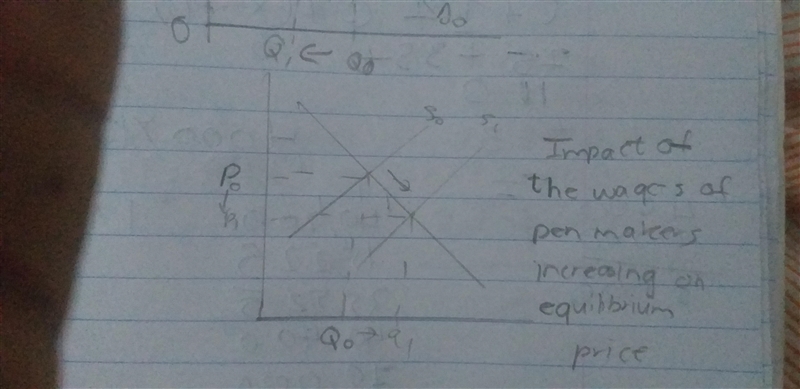 0
D₀
Q₁ ← Q₀
S₀ S₁
P₀
↓
P₁
Q₀ → q₁
Impact of
the wages of
pen makers
increasing on
equilibrium
price